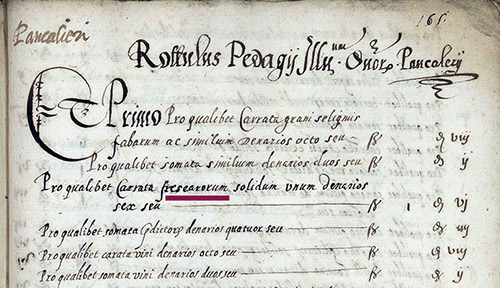 165
Pancalieri
Rottulus Pedagij Illu.um D.nor. Pancalerij
Et Primo Pro qualibet Carrata grani seliginis
fabarum ac similium denarios octo seu ß đ viij
Pro qualibet somata similium denarios duos seu ß đ ij
Pro qualibet Carrata solidum unum denarios
sex seu ß 1 đ vj
Pro qualibet somata denarios quatuor seu ß đ iiij
Pro qualibet carata vini denarios octo seu ß đ viij
Pro qualibet somata vini denarios duos seu ß đ ij